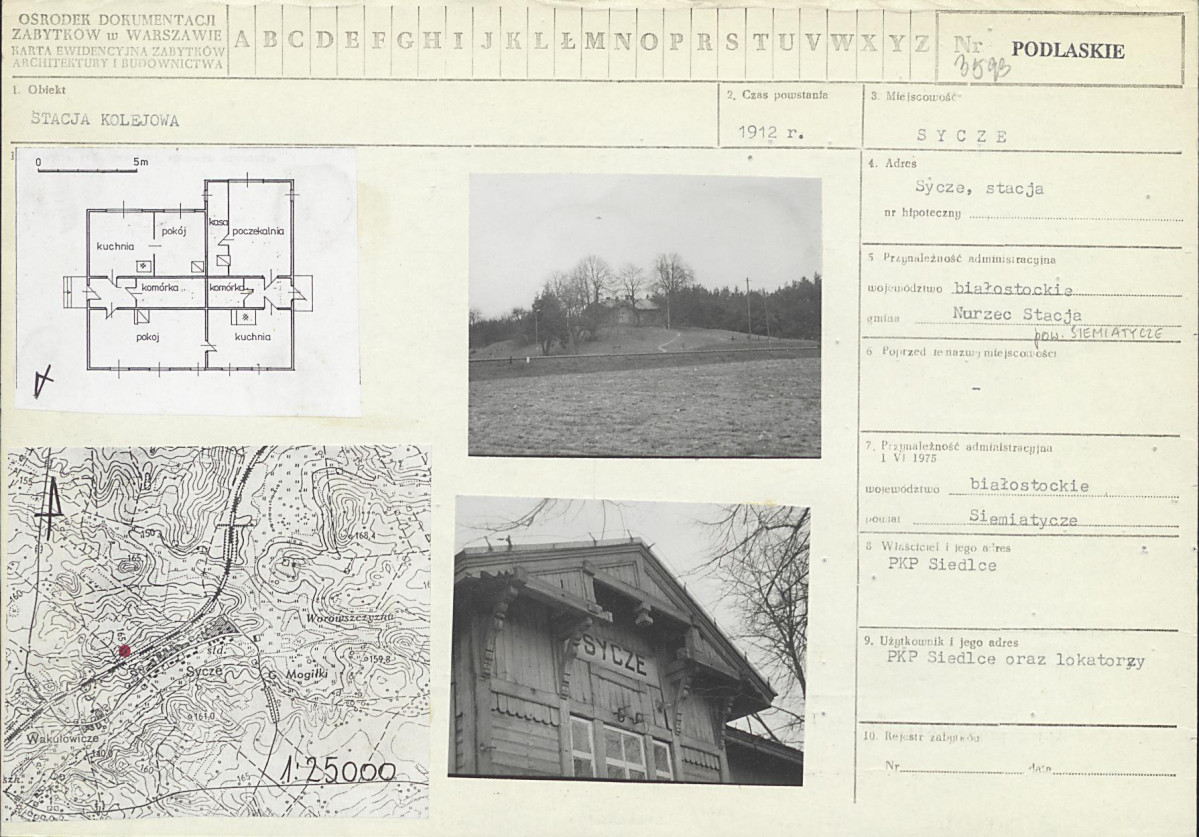 OŚRODEK DOKUMENTACJI
ZABYTKÓW w WARSZAWIE
KARTA EWIDENCYJNA ZABYTKÓW
ARCHITEKTURY I BUDOWNICTWA
A B C D E F G H I J K L Ł M N O P R S T U V W X Y Z
Nr
3593
PODLASKIE
1. Obiekt
STACJA KOLEJOWA
2. Czas powstania
1912 r.
3. Miejscowość
SYCZE
0 5m
kuchnia
pokój
kasa
poczekalnia
komórka
komórka
pokój
kuchnia
155
150
165
168,4
160
Worowszczyzna
159,8
Sycze
G. Mogiłki
161,0
Wakułowicze
140,0
160
165
szk.
1:25000
SYCZE
4. Adres
Sycze, stacja
nr hipoteczny
5 Przynależność administracyjna
województwo białostockie
gmina Nurzec Stacja
pow. SIEMIATYCZE
6 Poprzednie nazwy miejscowości
-
7. Przynależność administracyjna
1 VI 1975
województwo białostockie
powiat Siemiatycze
8 Właściciel i jego adres
PKP Siedlce
9. Użytkownik i jego adres
PKP Siedlce oraz lokatorzy
10. Rejestr zabytków
Nr data